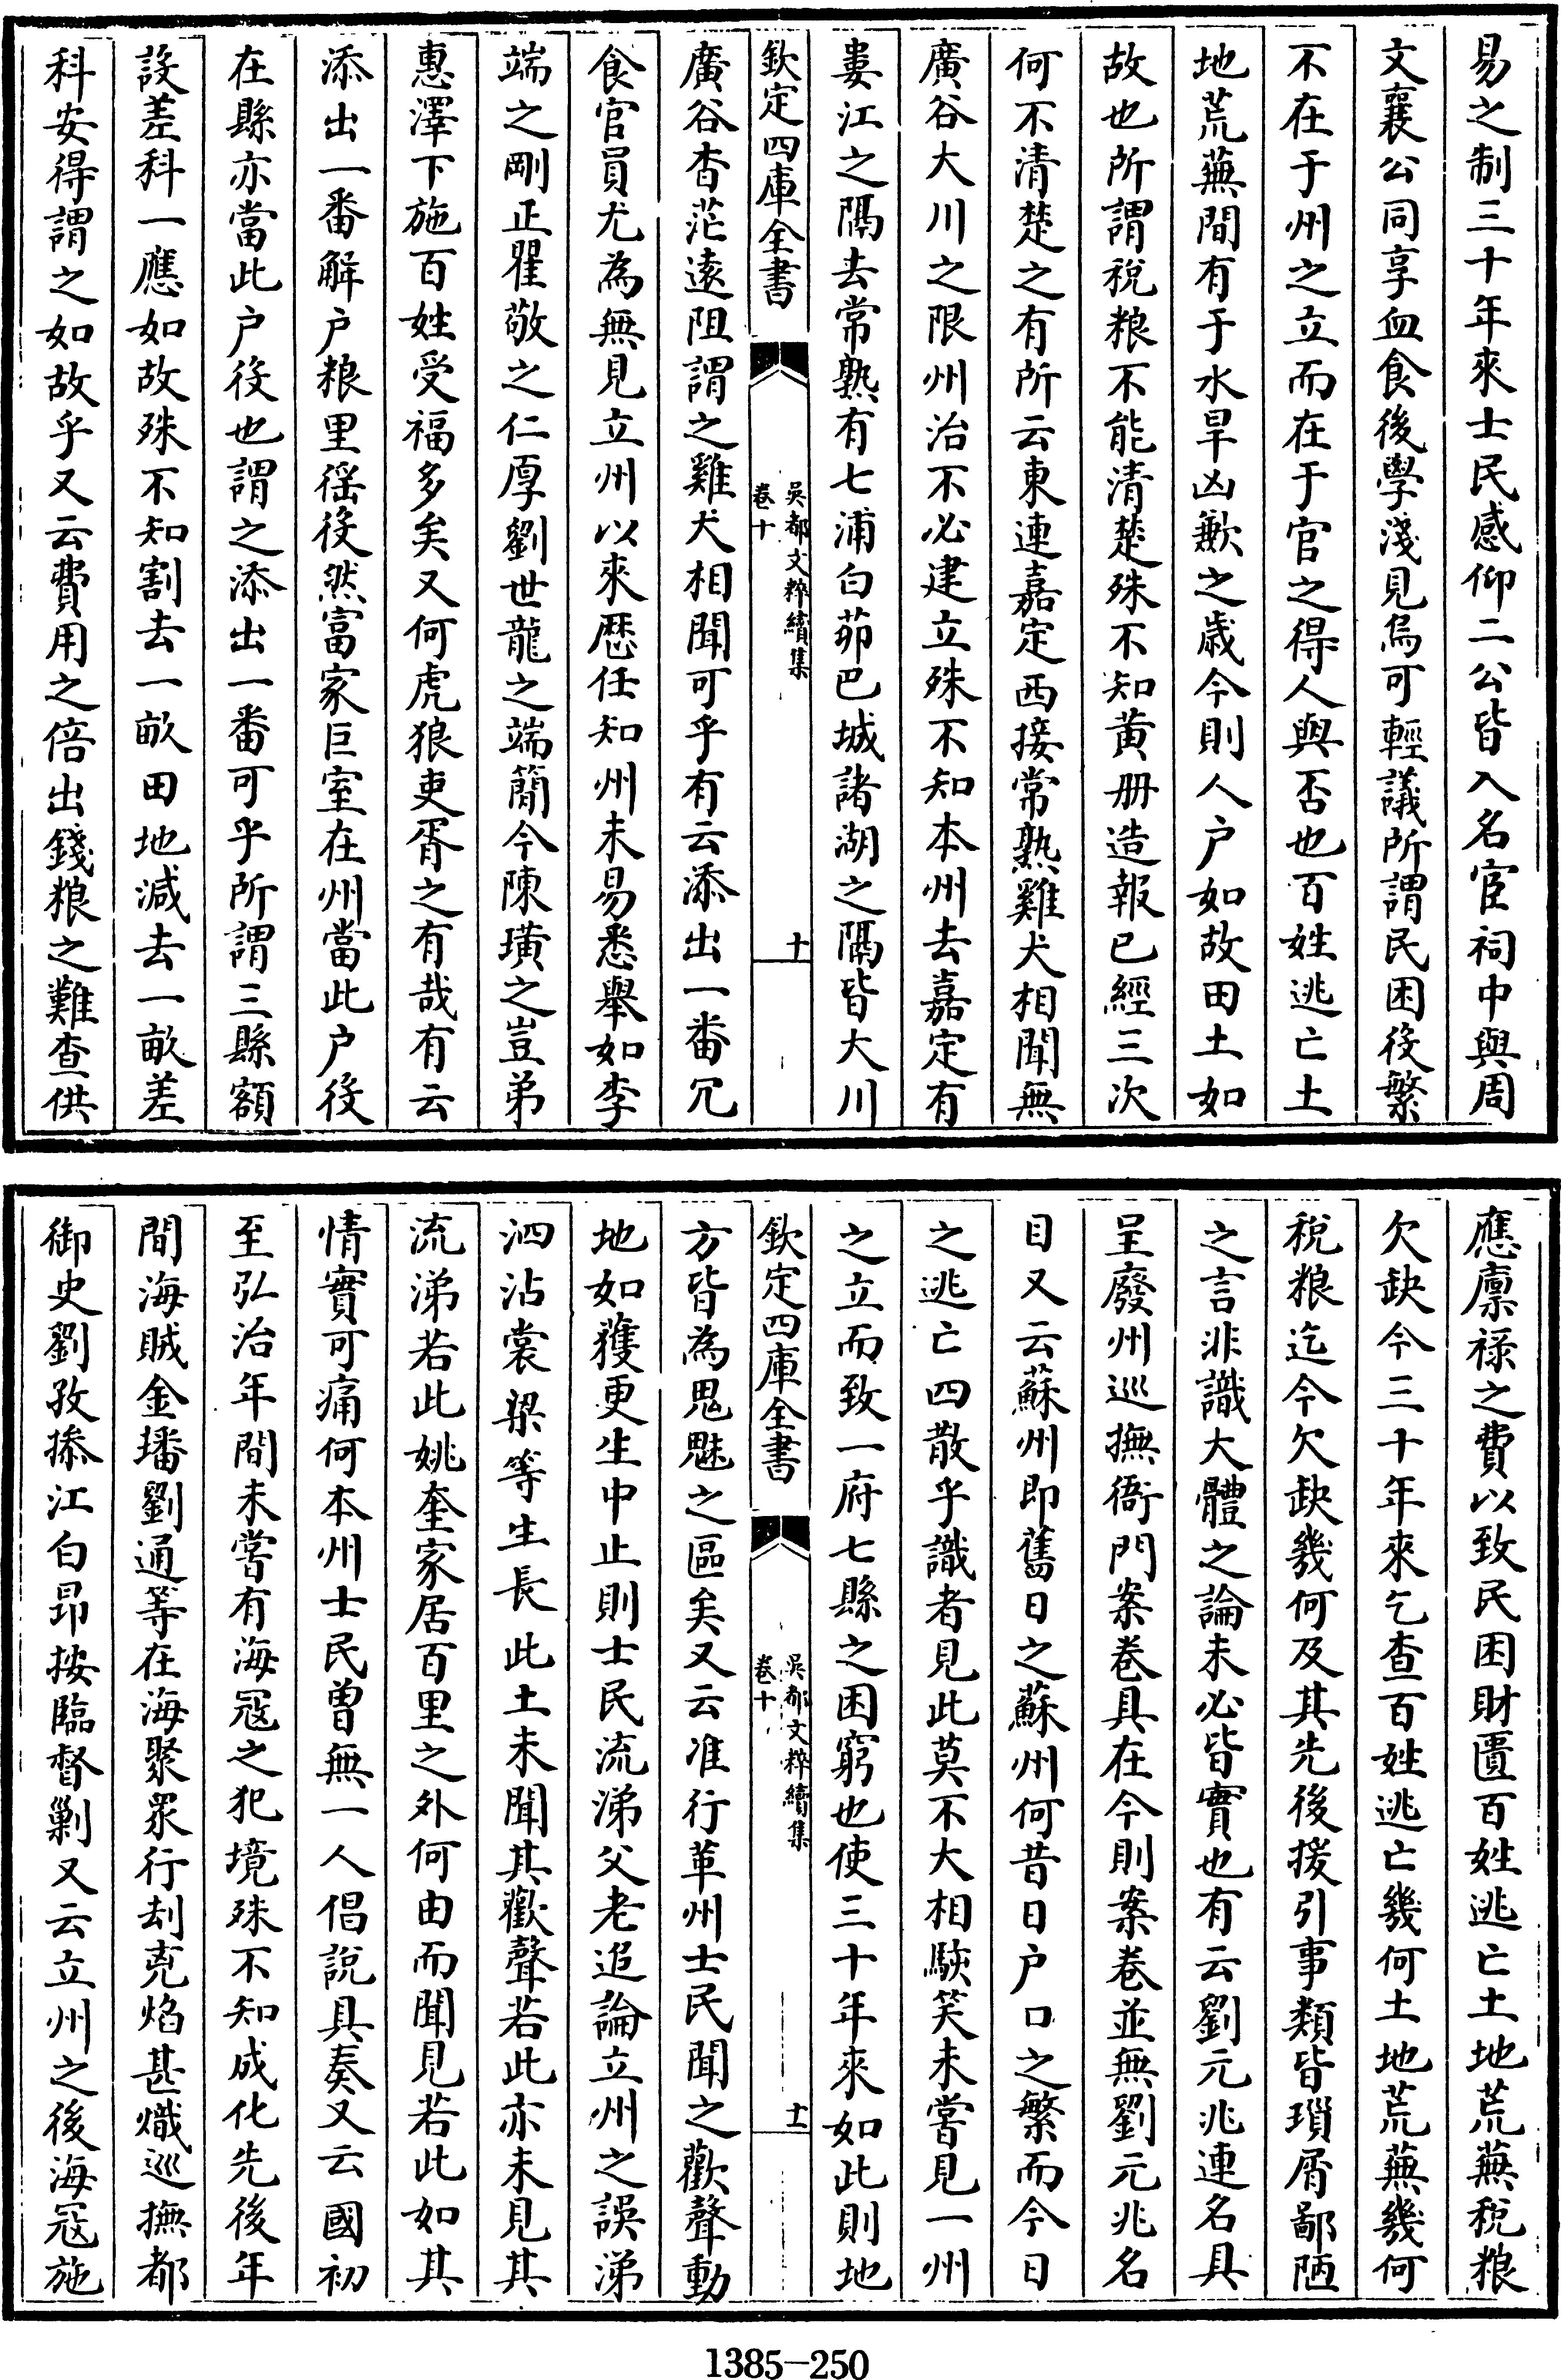 易之制三十年來士民感仰二公皆入名宦祠中與周
文襄公同享血食後學淺見烏可輕議所謂民困役繁
不在于州之立而在于官之得人與否也百姓逃亡土
地荒蕪間有于水旱凶歉之歲今則人户如故田土如
故也所謂稅粮不能清楚殊不知黄册造報已經三次
何不清楚之有所云東連嘉定西接常熟雞犬相聞無
廣谷大川之限州治不必建立殊不知本州去嘉定有
婁江之隔去常熟有七浦白茆巴城諸湖之隔皆大川
欽定四庫全書
吳都文粹續集
卷十
十
廣谷杳茫遠阻謂之雞犬相聞可乎有云添出一番冗
食官員尤為無見立州以來歷任知州未易悉舉如李
端之剛正瞿敬之仁厚劉世龍之端簡今陳璜之豈弟
惠澤下施百姓受福多矣又何虎狼吏胥之有哉有云
添出一番解户粮里徭役然富家巨室在州當此户役
在縣亦當此户役也謂之添出一番可乎所謂三縣額
設差科一應如故殊不知割去一畝田地減去一畝差
科安得謂之如故乎又云費用之倍出錢粮之難查供
應廪祿之費以致民困財匱百姓逃亡土地荒蕪稅粮
欠缺今三十年來乞查百姓逃亡幾何土地荒蕪幾何
稅粮迄今欠缺幾何及其先後援引事類皆瑣屑鄙陋
之言非識大體之論未必皆實也有云劉元兆連名具
呈廢州巡撫衙門案卷具在今則案卷並無劉元兆名
目又云蘇州即舊日之蘇州何昔日户口之繁而今日
之逃亡四散乎識者見此莫不大相駭笑未嘗見一州
之立而致一府七縣之困窮也使三十年來如此則地
欽定四庫全書
吳都文粹續集
卷十
十一
方皆為鬼魅之區矣又云准行革州士民聞之歡聲動
地如獲更生中止則士民流涕父老追論立州之誤涕
泗沾裳梁等生長此土未聞其歡聲若此亦未見其
流涕若此姚奎家居百里之外何由而聞見若此如其
情實可痛何本州士民曾無一人倡說具奏又云國初
至弘治年間未嘗有海寇之犯境殊不知成化先後年
間海賊金墦劉通等在海聚眾行刦兇焰甚熾巡撫都
御史劉孜操江白昂按臨督剿又云立州之後海寇施
1385-250